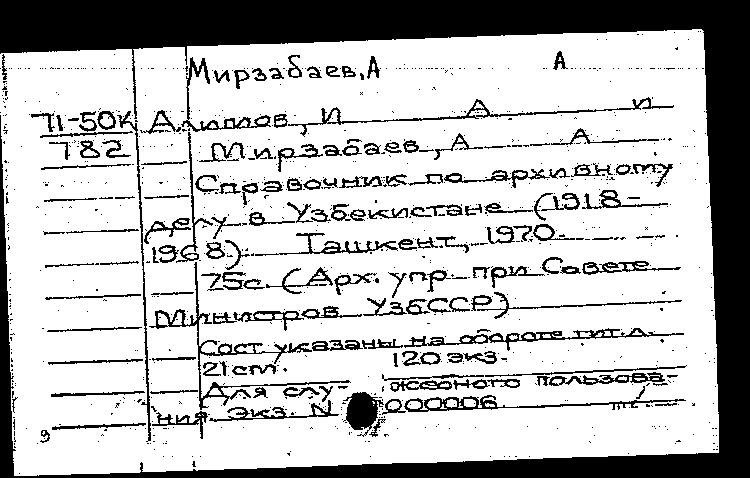 Мирзабаев, А А
71-50К Алиплов, И А И
782 Мирзабаев, А А
Справочник по архивному
делу в Узбекистане (1918-
1968). Ташкент, 1970.
75с. (Арх. упр. при Совете
Министров УзбССР)
Сост. указаны на обороте тит. л.
21 cm. 120 экз.
Для слу- жебного пользова-
ния. Экз. N 000006
9